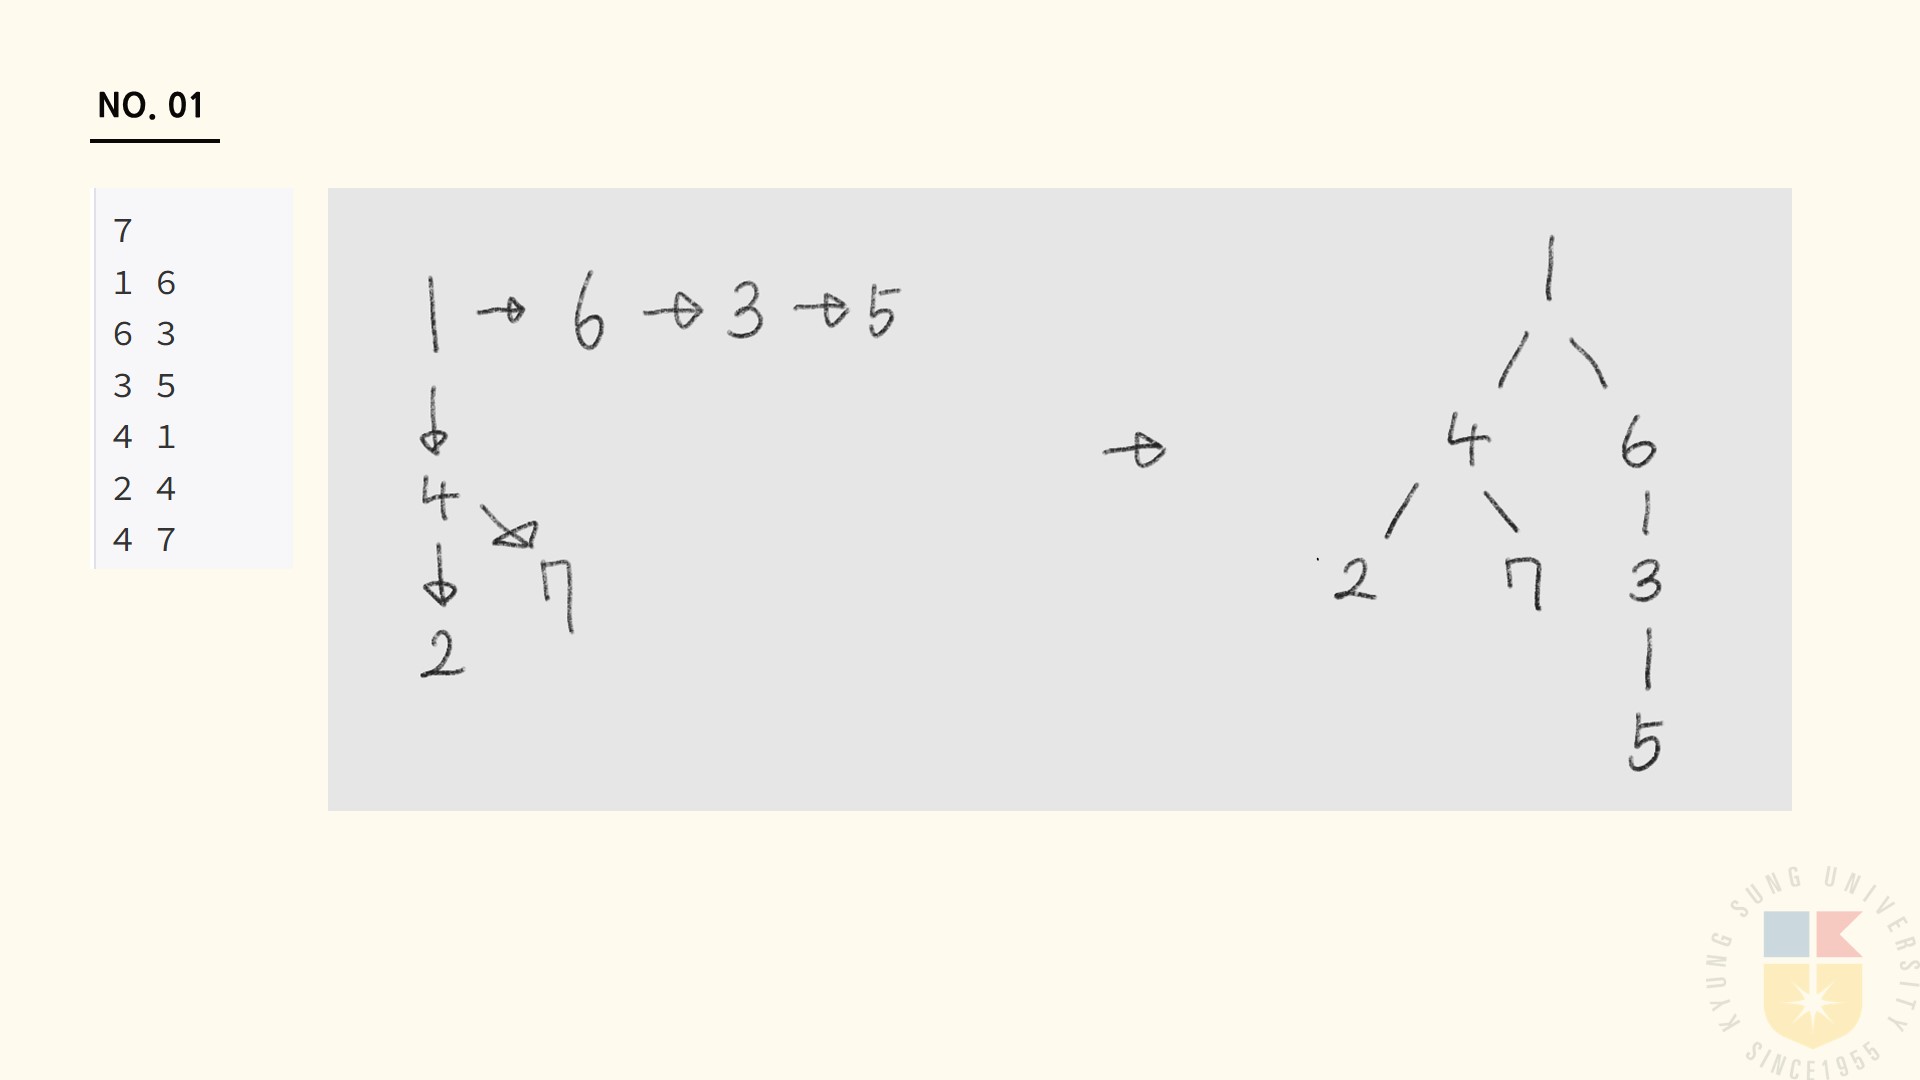 NO. 01
7
1 6
6 3
3 5
4 1
2 4
4 7
1 → 6 → 3 → 5
↓
4
↓ ↘
2 7
→
1
/ \
4 6
/ \ |
2 7 3
|
5
KYUNG SUNG UNIVERSITY
SINCE1955